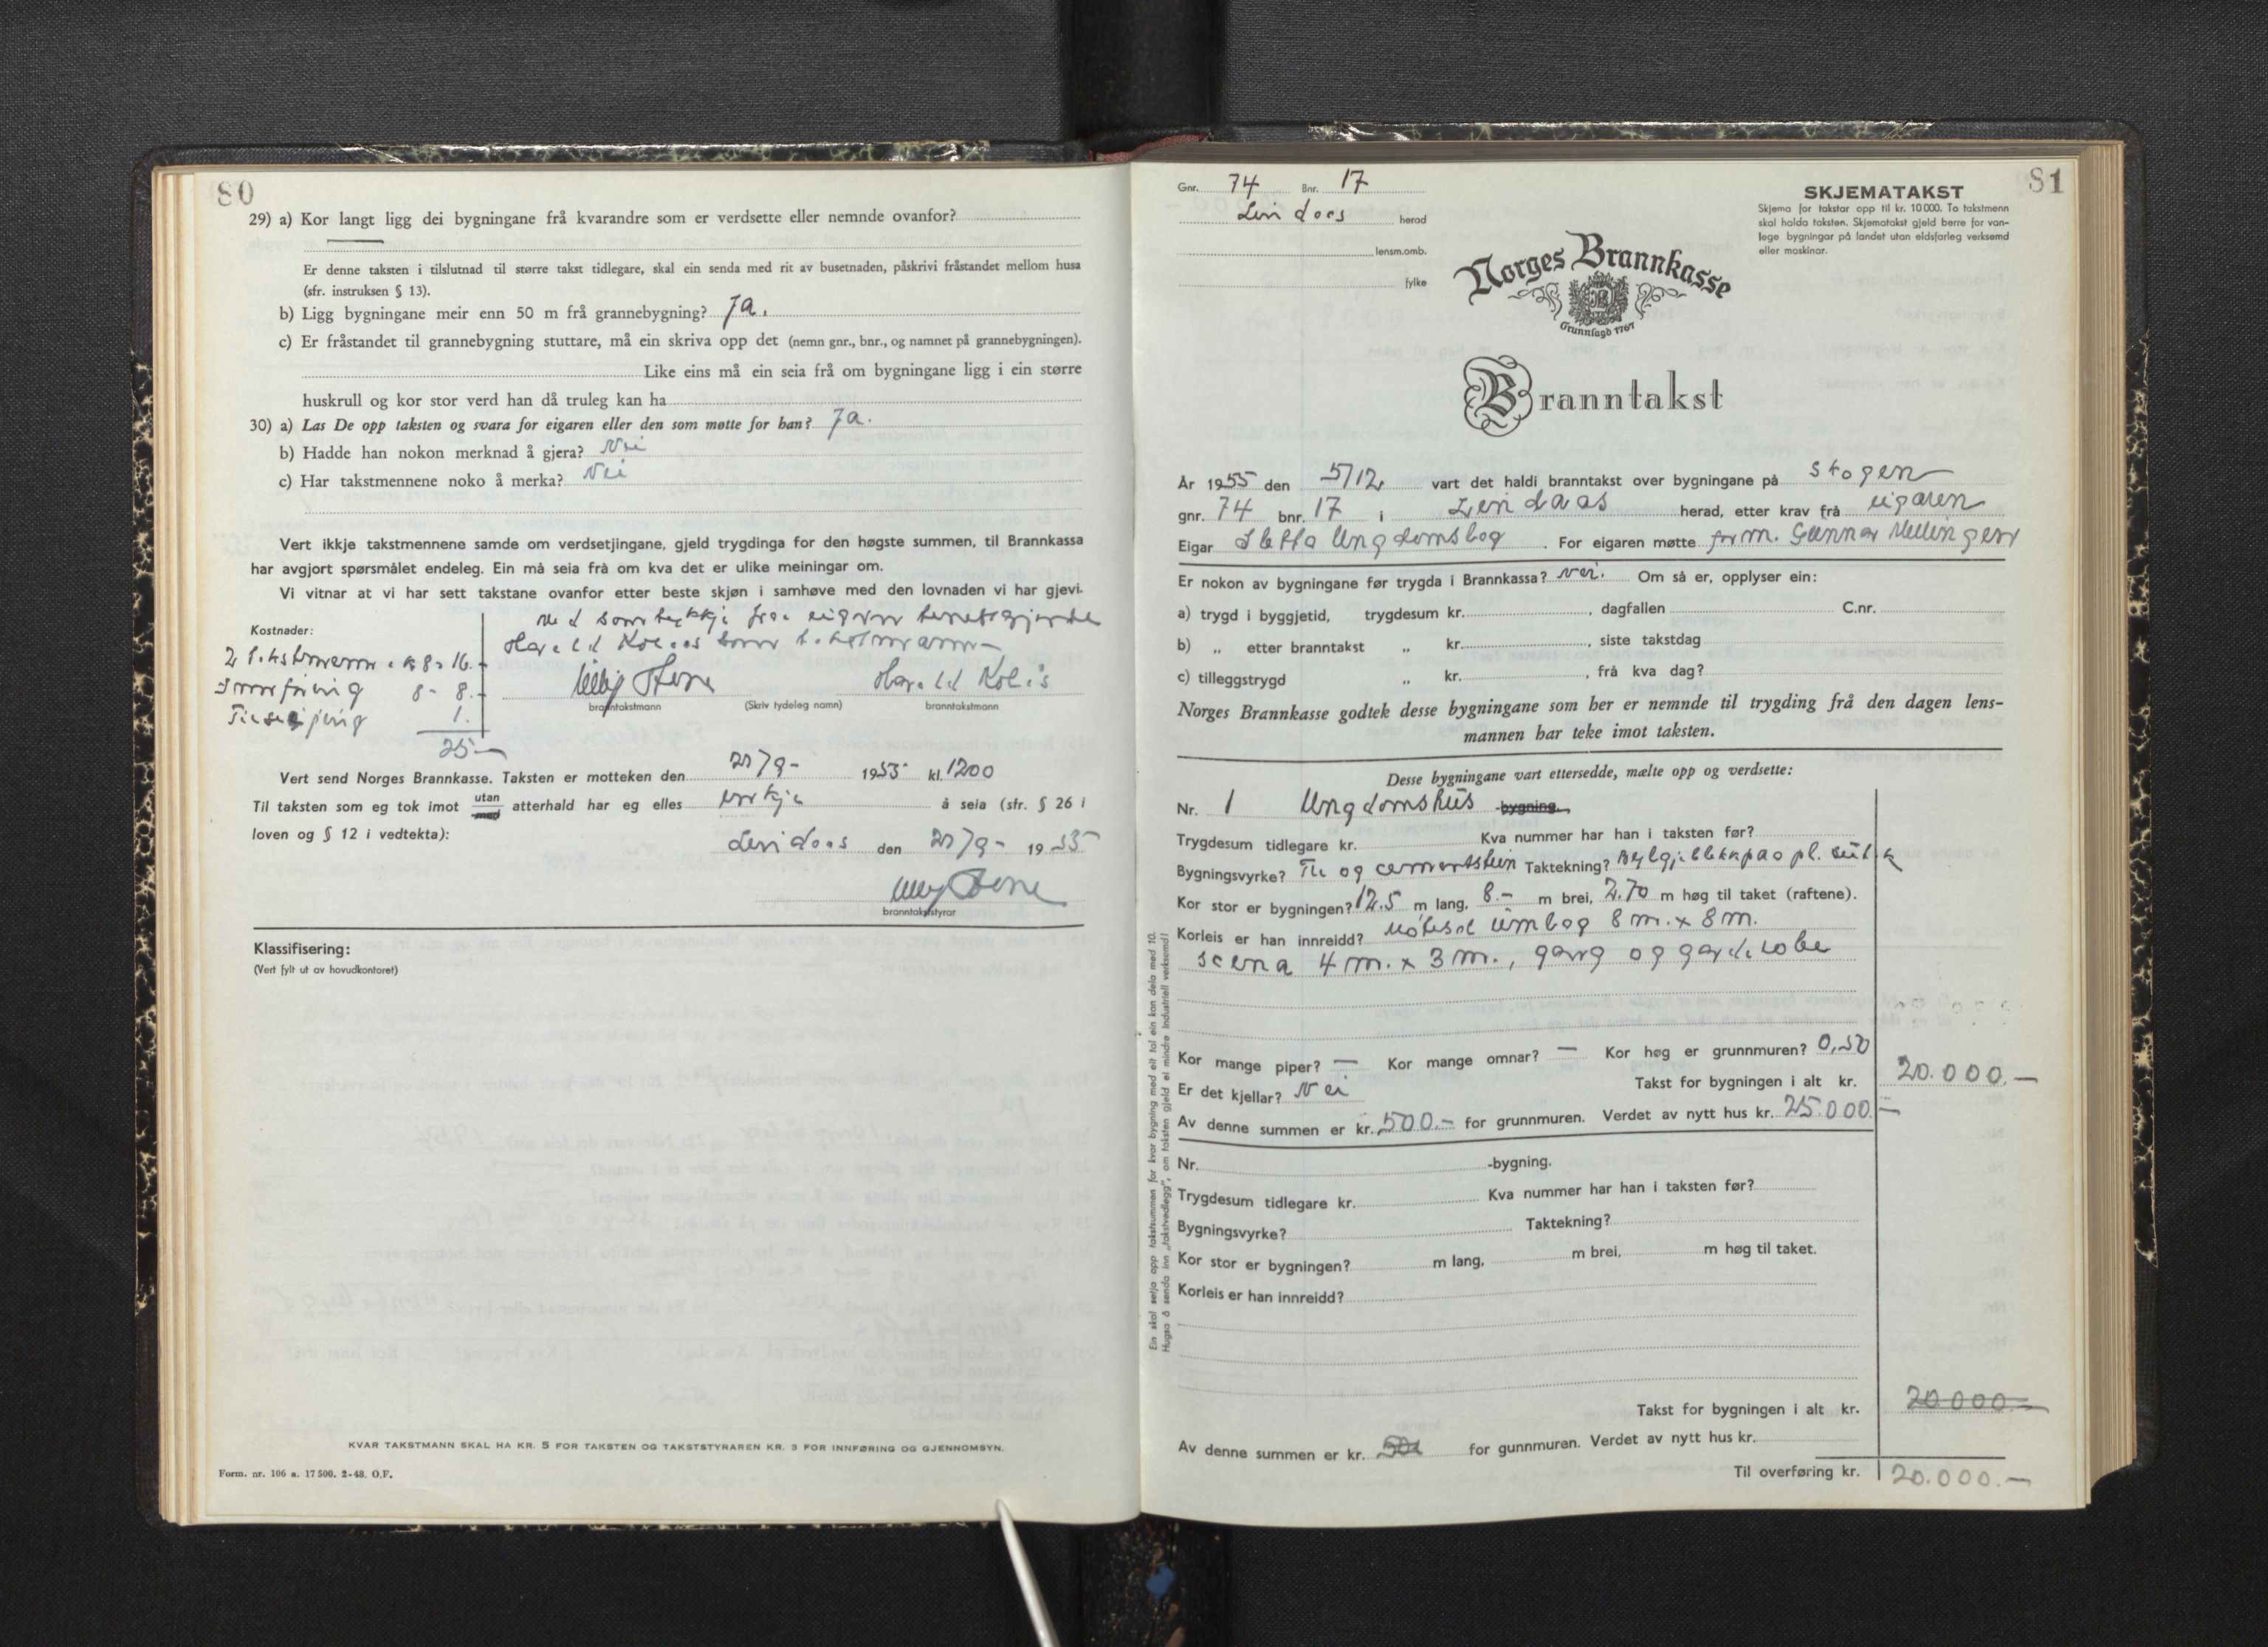 80
29) a) Kor langt ligg dei bygningane frå kvarandre som er verdsette eller nemnde ovanfor?
Er denne taksten i tilslutnad til større takst tidlegare, skal ein senda med rit av busetnaden, påskrivi fråstandet mellom husa
(sfr. instruksen § 13).
b) Ligg bygningane meir enn 50 m frå grannebygning? Ja.
c) Er fråstandet til grannebygning stuttare, må ein skriva opp det (nemn gnr., bnr., og namnet på grannebygningen).
Like eins må ein seia frå om bygningane ligg i ein større
huskrull og kor stor verd han då truleg kan ha
30) a) Las De opp taksten og svara for eigaren eller den som møtte for han? Ja.
b) Hadde han nokon merknad å gjera? Nei
c) Har takstmennene noko å merka? Nei
Vert ikkje takstmennene samde om verdsetjingane, gjeld trygdinga for den høgste summen, til Brannkassa
har avgjort spørsmålet endeleg. Ein må seia frå om kva det er ulike meiningar om.
Vi vitnar at vi har sett takstane ovanfor etter beste skjøn i samhøve med den lovnaden vi har gjevi.
Med samtykkje fra eigaren tenestgjorde
Kostnader:
Harald Kolås som takstmann
2 takstmenn a k 8 = 16.-
Innføring 8 - 8.-
1.
25.-
Harald Kolås
branntakstmann (Skriv tydeleg namn) branntakstmann
Vert send Norges Brannkasse. Taksten er motteken den 27/9- 1955 kl. 1200
Til taksten som eg tok imot utan/med atterhald har eg elles ikkje å seia (sfr. § 26 i
loven og § 12 i vedtekta):
Lindaas den 27/9- 1955
branntakststyrar
Klassifisering:
(Vert fylt ut av hovudkontoret)
KVAR TAKSTMANN SKAL HA KR. 5 FOR TAKSTEN OG TAKSTSTYRAREN KR. 3 FOR INNFØRING OG GJENNOMSYN.
Form. nr. 106 a. 17 500. 2-48. O.F.
81
Gnr. 74 Bnr. 17
Lindaas herad
lensm.omb.
fylke
SKJEMATAKST
Skjema for takstar opp til kr. 10 000. To takstmenn
skal halda taksten. Skjematakst gjeld berre for van-
lege bygningar på landet utan eldsfarleg verksemd
eller maskinar.
Norges Brannkasse
Grunnlagd 1767
Branntakst
År 1955 den 5/12 vart det haldi branntakst over bygningane på Skogen
gnr. 74 bnr. 17 i Lindaas herad, etter krav frå eigaren
Eigar Sletta Ungdomslag. For eigaren møtte form. Gunnar Mellingen
Er nokon av bygningane før trygda i Brannkassa? nei. Om så er, opplyser ein:
a) trygd i byggjetid, trygdesum kr. , dagfallen C.nr.
b) „ etter branntakst „ kr. , siste takstdag
c) tilleggstrygd „ kr. , frå kva dag?
Norges Brannkasse godtek desse bygningane som her er nemnde til trygding frå den dagen lens-
mannen har teke imot taksten.
Desse bygningane vart ettersedde, mælte opp og verdsette:
Nr. 1 Ungdomshus -bygning.
Trygdesum tidlegare kr. Kva nummer har han i taksten før?
Bygningsvyrke? Tre og cementstein Taktekning? Bylgjeblekk på pl. sutak
Kor stor er bygningen? 12.5 m lang, 8.- m brei, 2.70 m høg til taket (raftene).
Korleis er han innreidd? Møtesal umlag 8 m. x 8 m.
scena 4 m. x 3 m., gang og garderobe
Kor mange piper? — Kor mange omnar? — Kor høg er grunnmuren? 0,50
Er det kjellar? Nei Takst for bygningen i alt kr. 20.000.-
Av denne summen er kr. 500.- for grunnmuren. Verdet av nytt hus kr. 25.000.-
Nr. -bygning.
Trygdesum tidlegare kr. Kva nummer har han i taksten før?
Bygningsvyrke? Taktekning?
Kor stor er bygningen? m lang, m brei, m høg til taket.
Korleis er han innreidd?
Takst for bygningen i alt kr. 20.000.-
Av denne summen er kr. for gunnmuren. Verdet av nytt hus kr.
Til overføring kr. 20.000.-
Ein skal setja opp takstsummen for kvar bygning med eit tal ein kan dela med 10.
Hugsa å senda inn „takstvedlegg", om taksten gjeld ei mindre industriell verksemd!